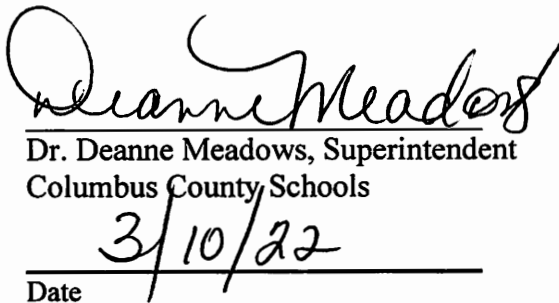 Deanne Meadows
Dr. Deanne Meadows, Superintendent
Columbus County Schools
3/10/22
Date